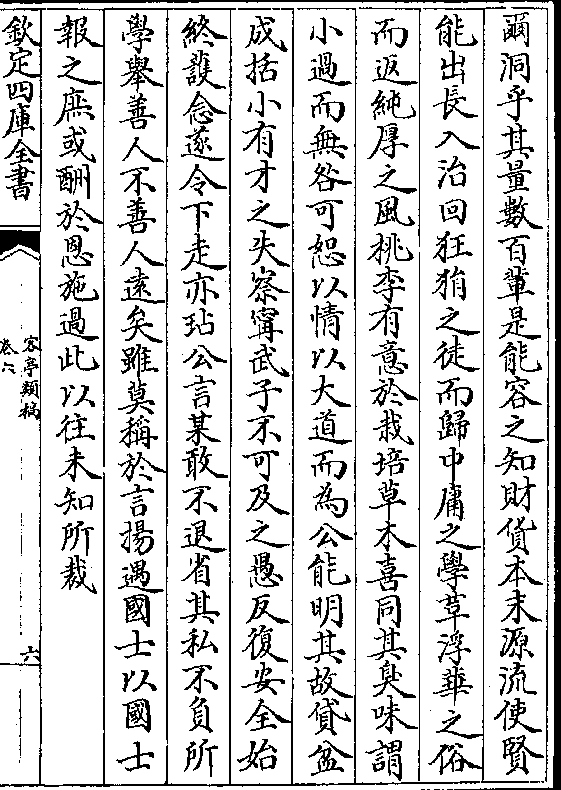 爾洞乎其量數百軰是能容之知財貨本末源流使賢
能出長入治回狂狷之徒而歸中庸之學革浮華之俗
而返純厚之風桃李有意於栽培草木喜同其臭味謂
小過而無咎可恕以情以大道而為公能明其故貸盆
成括小有才之失察甯武子不可及之愚反復安全始
終護念遂令下走亦玷公言某敢不退省其私不負所
學舉善人不善人逺矣雖莫稱於言揚遇國士以國士
報之庶或酬於恩施過此以往未知所裁
欽定四庫全書
客亭類稿
卷六
六